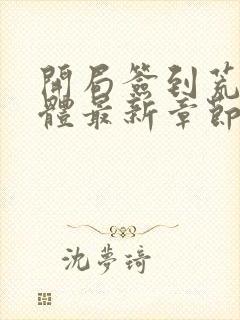 開局簽到荒
體最新章節
沈夢琦